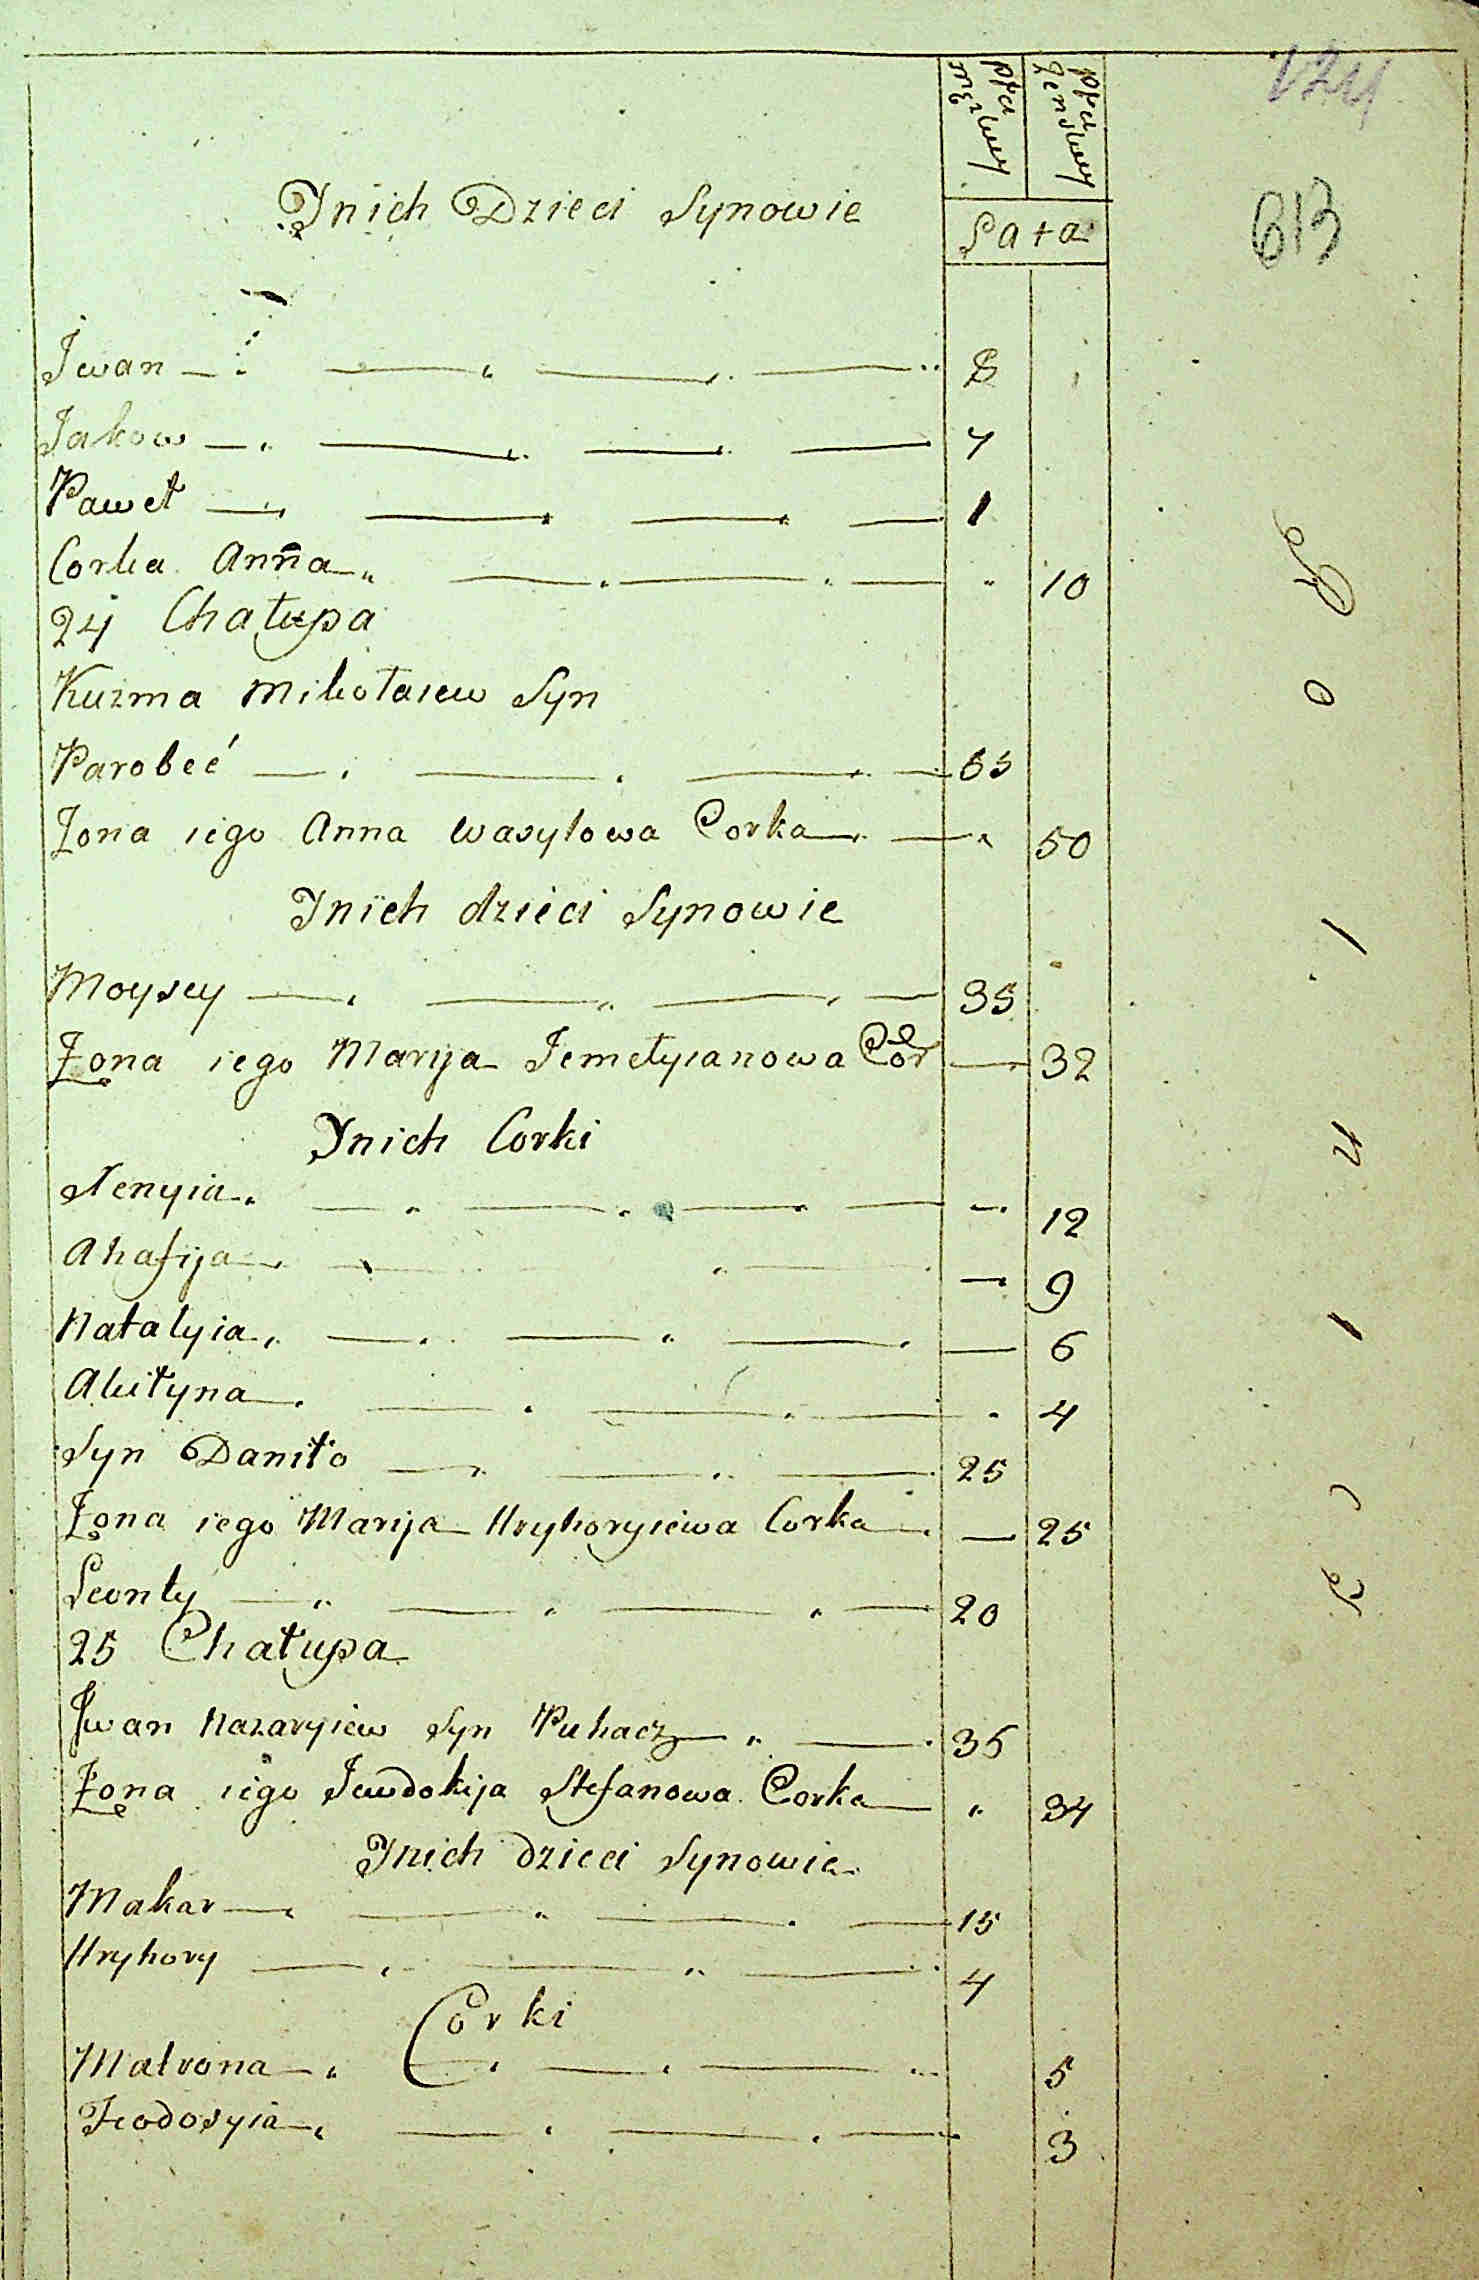 płci męzkiey
płci żenskiey
124
613
Jnich Dzieci Synowie
Lata
Jwan 8
Jakow 7
Paweł 1
Corka Anna 10
24 Chałupa
Kuzma Mikołaiew Syn
Parobeć 65
Żona iego Anna Wasylowa Corka 50
Jnich dzieci Synowie
Moysey 35
Żona iego Marija Jemelyianowa Cor 32
Jnich Corki
Xenyia 12
Ahafija 9
Natalyia 6
Akilyna 4
Syn Daniło 25
Żona iego Marija Hryhoryiewa Corka 25
Leonty 20
25 Chałupa
Jwan Nazaryiew Syn Puhacz 35
Żona iego Jewdokija Stefanowa Corka 34
Jnich dzieci Synowie
Makar 15
Hryhory 4
Corki
Matrona 5
Feodosyia 3